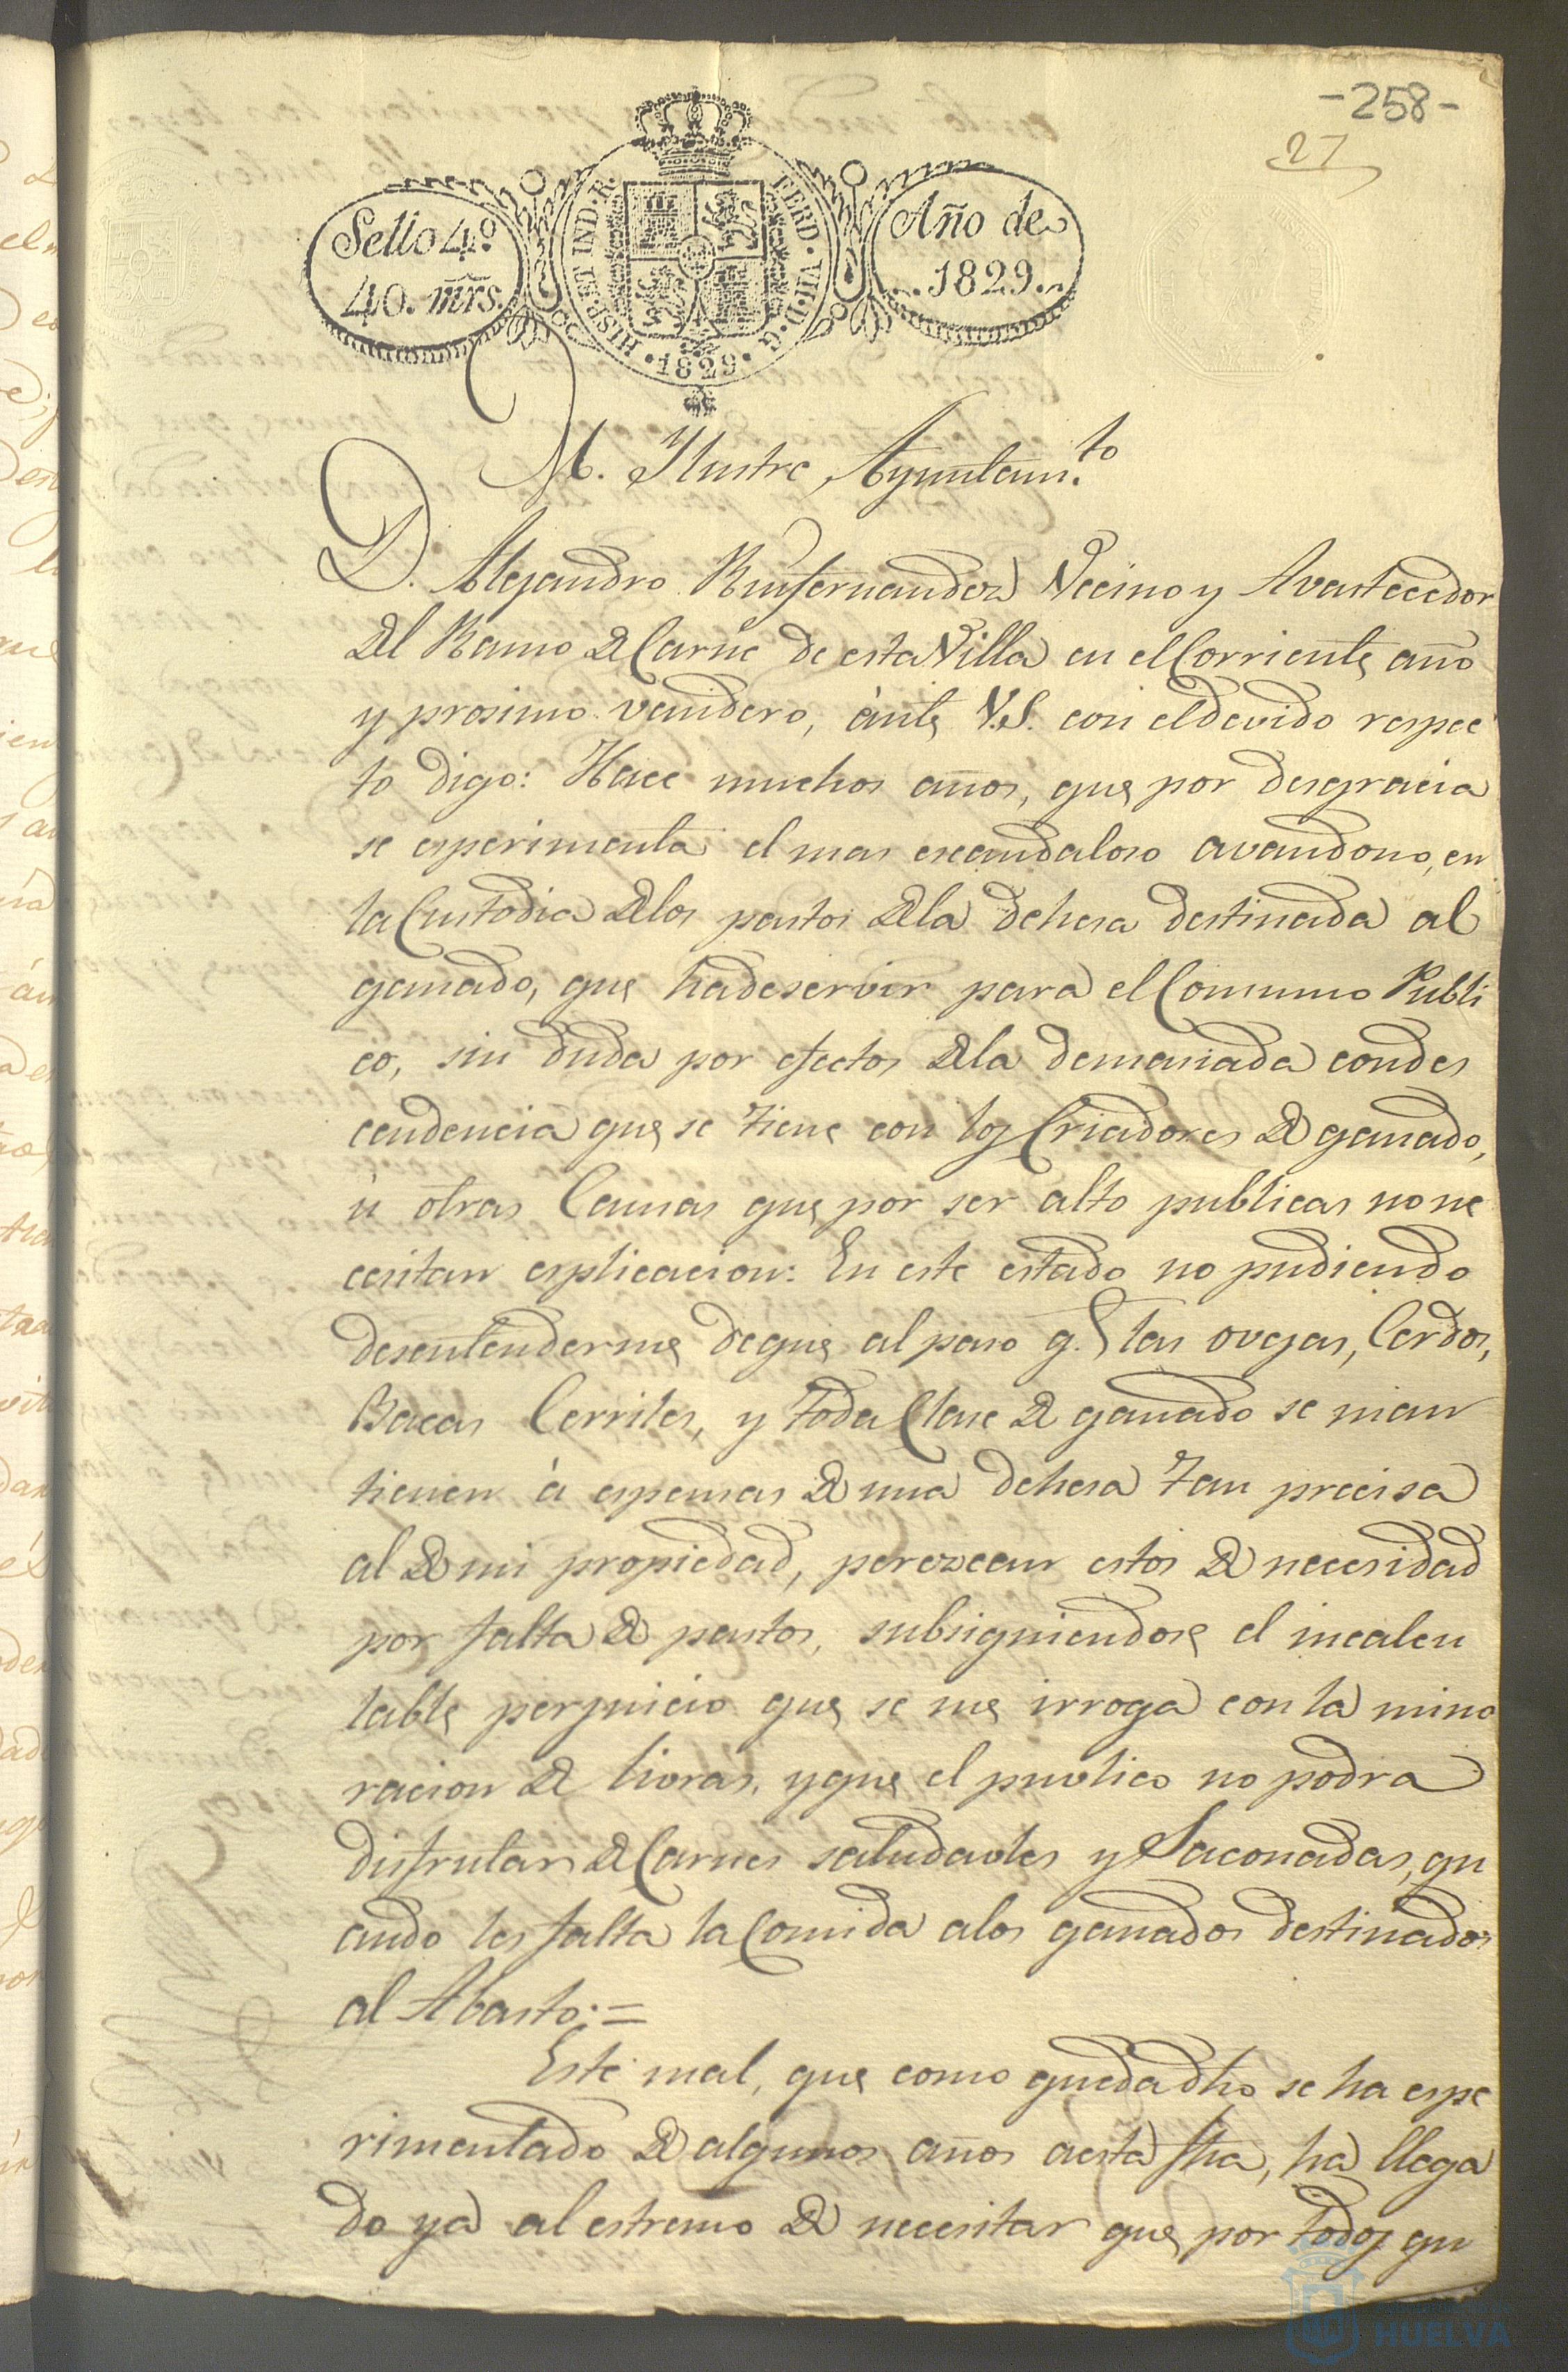 -258-
27
Sello 4º
40. mrs.
HISP. ET IND. R.
FERD. VII. D. G.
1829
Año de
1829.
M. Ylustre Ayuntam.to
D. Alejandro Ruifernandez Vecino y Avastecedor
del Ramo de Carne de esta Villa en el Corriente año
y prosimo venidero, ànte V.S. con el devido respec
to digo: Hace muchos años, que por desgracia
se esperimenta el mas escandaloso avandono, en
la Custodia de los pastos de la dehesa destinada al
ganado, que ha de servir para el Comumo Publi
co, sin duda por efectos de la demasiada condes
cendencia que se tiene con los Criadores de ganado,
ù otras Causas que por ser alto publicas no ne
cesitan esplicacion: En este estado no pudiendo
desentenderme de que al paso q.e las ovejas, Cerdos,
Bacas Cerriles, y toda Clase de ganado se man
tienen à espensas de una dehesa tan precisa
al de mi propiedad, perezcan estos de necesidad
por falta de pastos, subsiguiendose el incalcu
lable perjuicio que se me irroga con la mino
racion de livras, y que el puvlico no podra
disfrutar de Carnes saludavles y Saconadas, qu
ando les falta la Comida a los ganados destinados
al Abasto: =
Este mal, que como queda dho se ha espe
rimentado de algunos años a esta fha, ha llega
do ya al estremo de necesitar que por todos qu
HUELVA